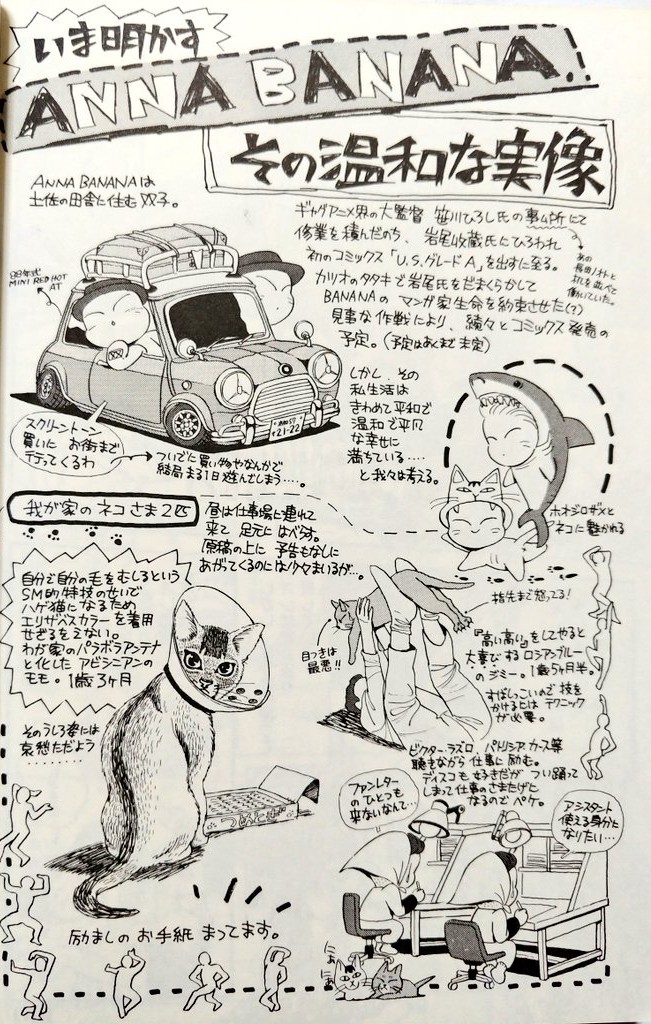 いま明かす
ANNA BANANA
その温和な実像
ANNA BANANAは
土佐の田舎に住む双子。
ギャグアニメ界の大監督 笹川ひろし氏の事ム所にて
修業を積んだのち、岩尾收蔵氏にひろわれ
初のコミックス「U.S.グレードA」を出すに至る。
カツオのタタキで岩尾氏をだまくらかして
BANANAのマンガ家生命を約束させた(?)
見事な作戦により、続々とコミックス発売の
予定。(予定はあくまで未定)
あの
机を並べて
働いていた。
88年式
MINI RED HOT
AT
しかし、その
私生活は
きわめて平和で
温和で平凡
な幸せに
満ちている‥‥
と我々は考える。
スクリーントーン
買いに お街まで
行ってくるわ
ついでに買い物やなんかで
結局まる1日遊んでしまう‥‥。
21-22
ホホジロザメと
ネコに魅かれる
我が家のネコさま2匹
昼は仕事場に連れて
来て 足元に はべらす。
原稿の上に 予告もなしに
あがってくるのには少々まいるが…。
自分で自分の毛をむしるという
SM的特技のせいで
ハゲ猫になるため
エリザベスカラーを着用
せざるをえない。
わが家のパラボラアンテナ
と化した アビシニアンの
モモ。1歳3ヶ月
そのうしろ姿には
哀愁ただよう
‥‥‥‥
つめとぎ
指先まで怒ってる!
目つきは
最悪!!
『高い高い』をしてやると
大喜びするロシアンブルー
のジミー。1歳5ヶ月半。
すばしこいので技を
かけるには テクニック
が必要。
ビクター・ラズロ、パトリシア・カース等
聴きながら仕事に励む。
ディスコも好きだが つい踊って
しまって仕事のさまたげに
なるのでペケ。
ファンレター
のひとつも
来ないなんて…
アシスタント
使える身分に
なりたい…
励ましの お手紙 まってます。
にゃあ
にゃあ